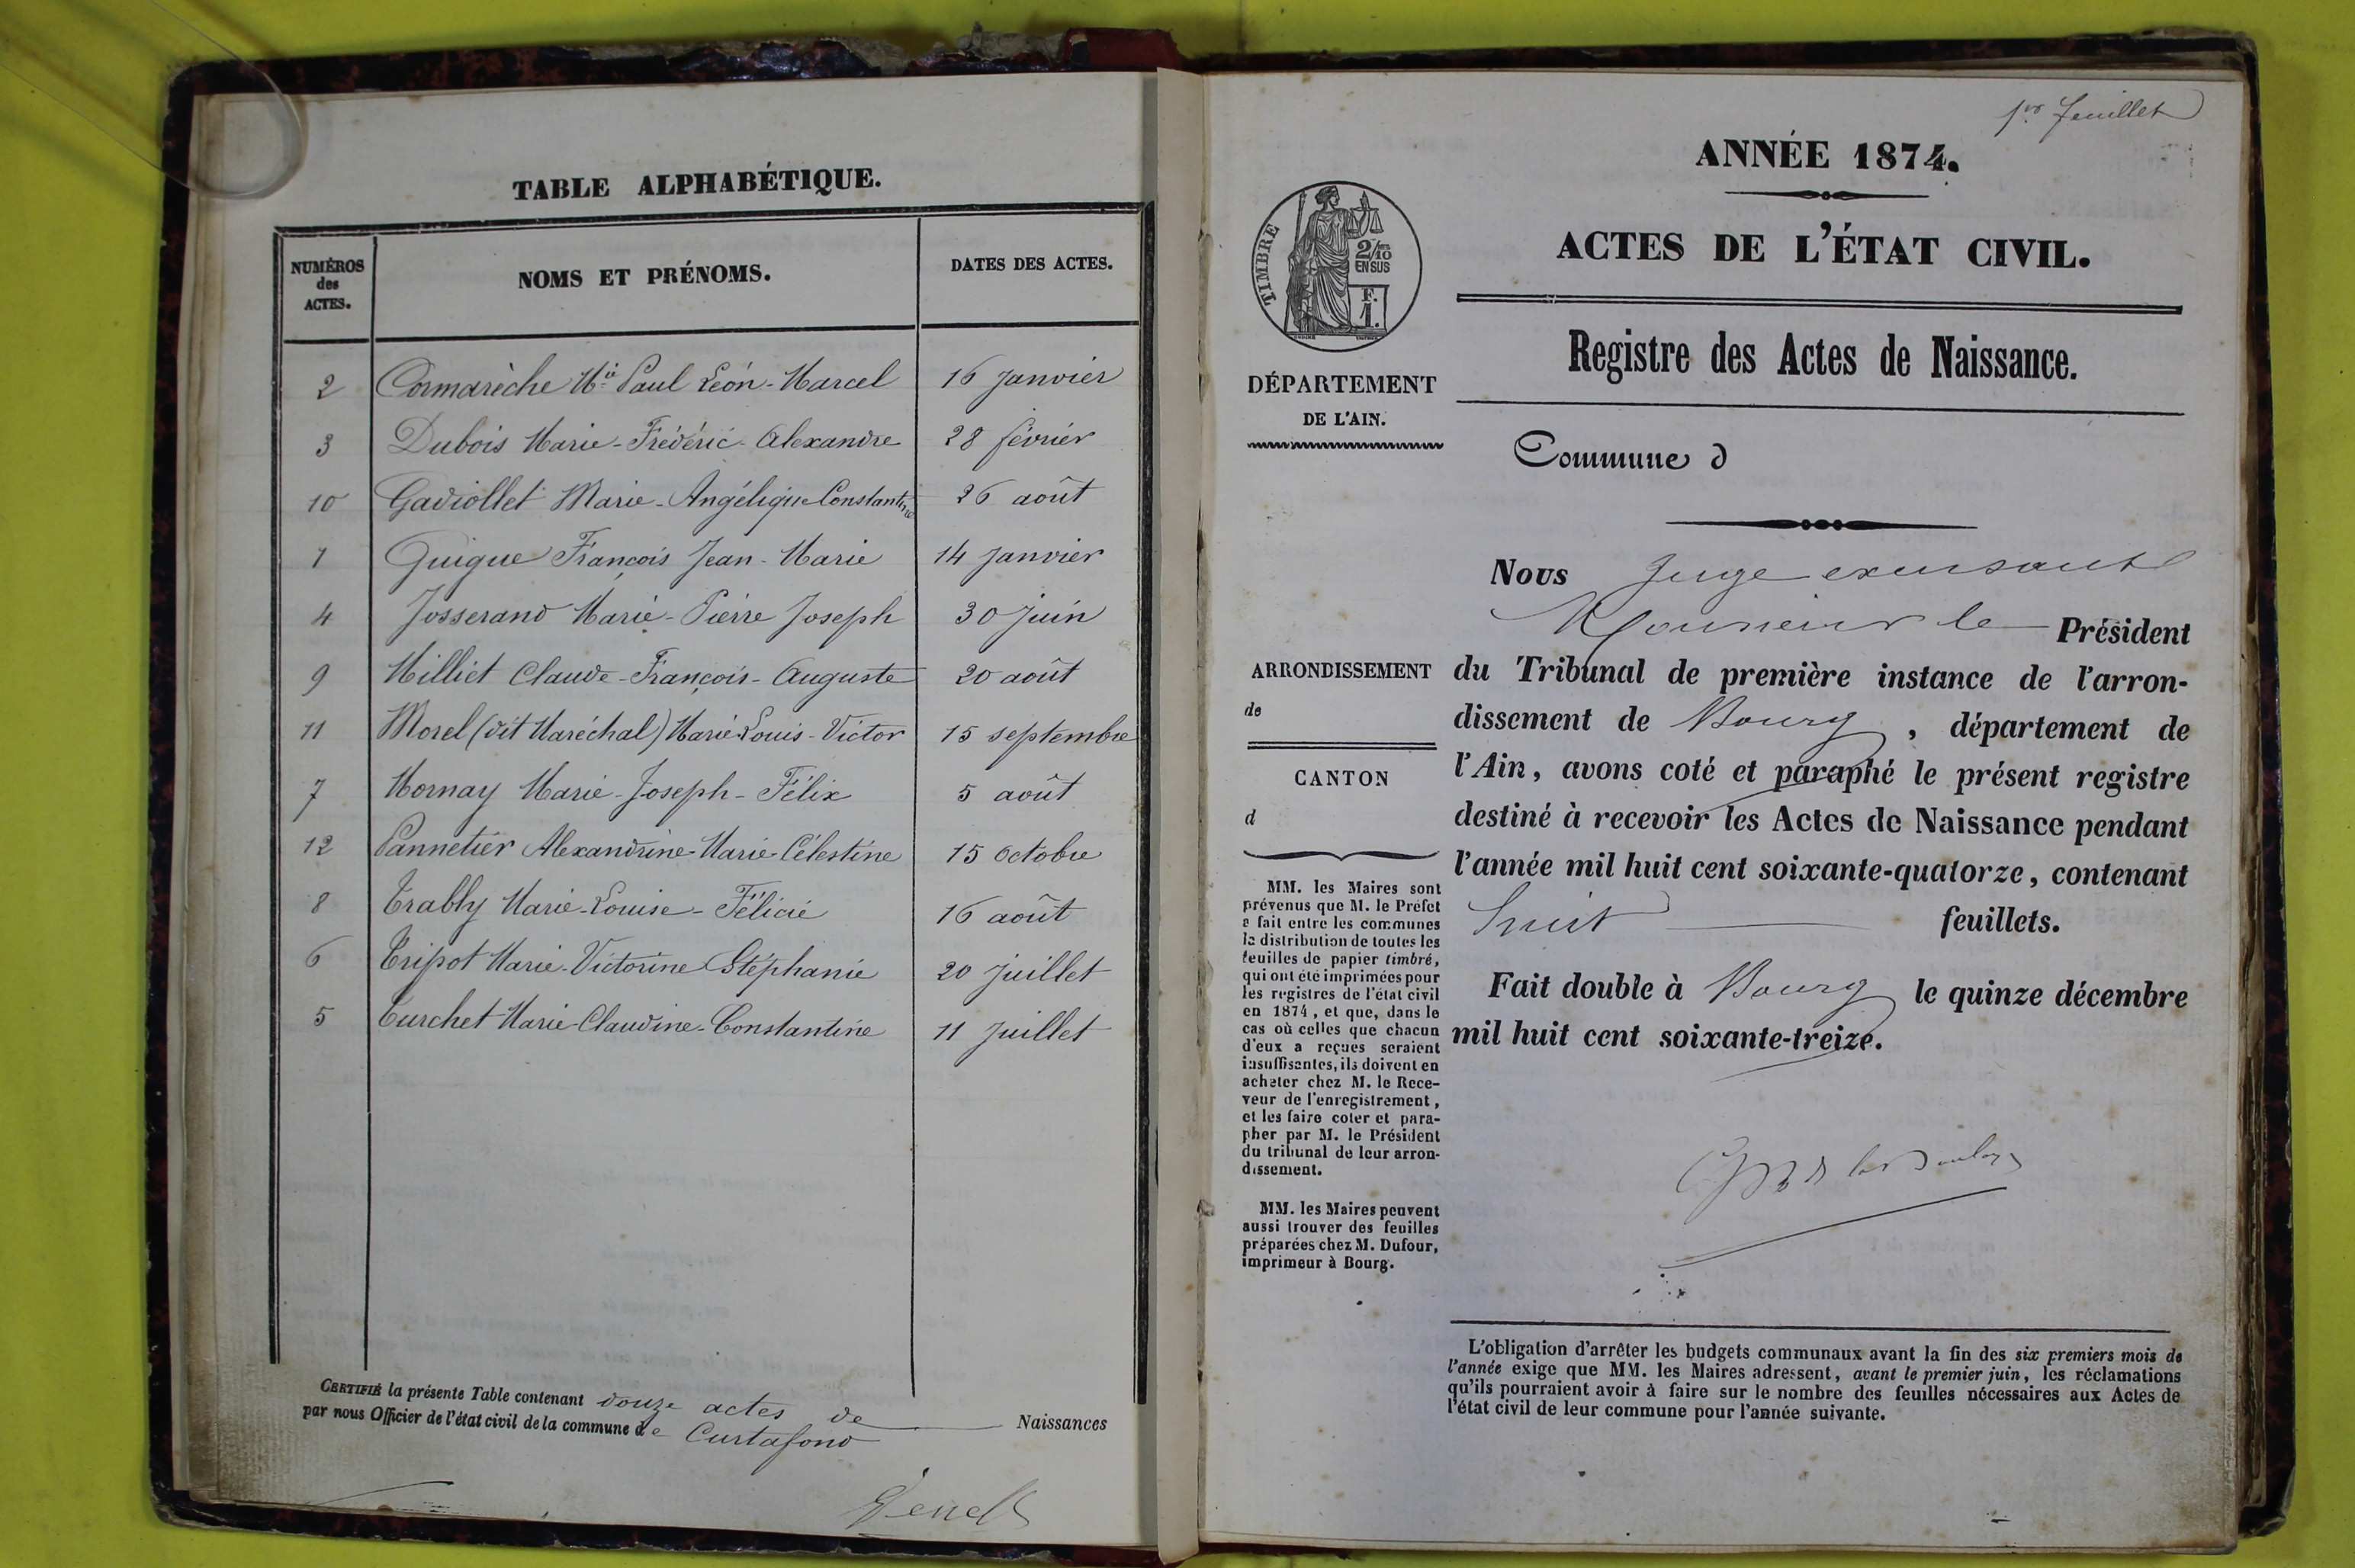 TABLE ALPHABÉTIQUE.
NUMÉROS
des
ACTES.
NOMS ET PRÉNOMS.
DATES DES ACTES.
2 Cormarèche Mie Paul Léon-Marcel 16 Janvier
3 Dubois Marie-Frédéric-Alexandre 28 février
10 Gadiollet Marie-Angélique Constantine 26 août
1 Guigue François Jean-Marie 14 Janvier
4 Josserand Marie-Pierre Joseph 30 Juin
9 Milliet Claude-François-Auguste 20 août
11 Morel (dit Maréchal) Marie Louis-Victor 15 septembre
7 Mornay Marie-Joseph-Félix 5 août
12 Pannetier Alexandrine-Marie-Célestine 15 Octobre
8 Trably Marie-Louise-Félicie 16 août
6 Tripot Marie-Victorine Stéphanie 20 Juillet
5 Turchet Marie-Claudine-Constantine 11 Juillet
CERTIFIÉ la présente Table contenant douze actes de Naissances
par nous Officier de l'état civil de la commune de Curtafond
1er feuillet
ANNÉE 1874.
ACTES DE L'ÉTAT CIVIL.
TIMBRE
2/10
EN SUS
F.
1.
Registre des Actes de Naissance.
DÉPARTEMENT
DE L'AIN.
Commune d
Nous Juge
Monsieur le Président
du Tribunal de première instance de l'arron-
dissement de Bourg, département de
l'Ain, avons coté et paraphé le présent registre
destiné à recevoir les Actes de Naissance pendant
l'année mil huit cent soixante-quatorze, contenant
huit feuillets.
Fait double à Bourg le quinze décembre
mil huit cent soixante-treize.
ARRONDISSEMENT
de
CANTON
d
MM. les Maires sont
prévenus que M. le Préfet
a fait entre les communes
la distribution de toutes les
feuilles de papier timbré,
qui ont été imprimées pour
les registres de l'état civil
en 1874, et que, dans le
cas où celles que chacun
d'eux a reçues seraient
insuffisantes, ils doivent en
acheter chez M. le Rece-
veur de l'enregistrement,
et les faire coter et para-
pher par M. le Président
du tribunal de leur arron-
dissement.
MM. les Maires peuvent
aussi trouver des feuilles
préparées chez M. Dufour,
imprimeur à Bourg.
L'obligation d'arrêter les budgets communaux avant la fin des six premiers mois de
l'année exige que MM. les Maires adressent, avant le premier juin, les réclamations
qu'ils pourraient avoir à faire sur le nombre des feuilles nécessaires aux Actes de
l'état civil de leur commune pour l'année suivante.